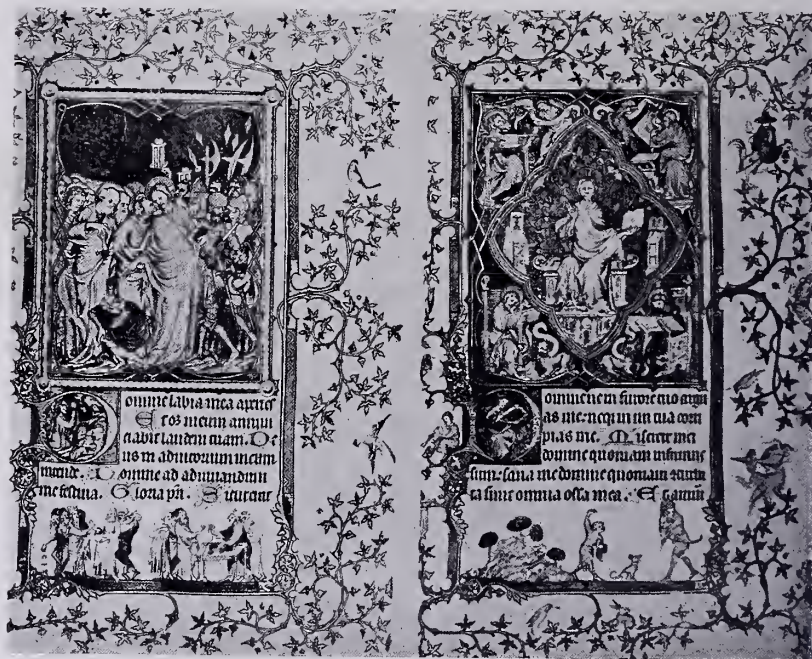 omine labia mea aperies
Et os meum annun
ciabit laudem tuam. De
us in adiutorium meum
intende. Domine ad adiuvandum
me festina. Gloria pri. Sicut erat
omine ne in furore tuo argu
as me: neq in ira tua corri
pias me. Miserere mei
domine quoniam infirmus
sum: sana me domine quoniam
ta sunt omnia ossa mea. Et